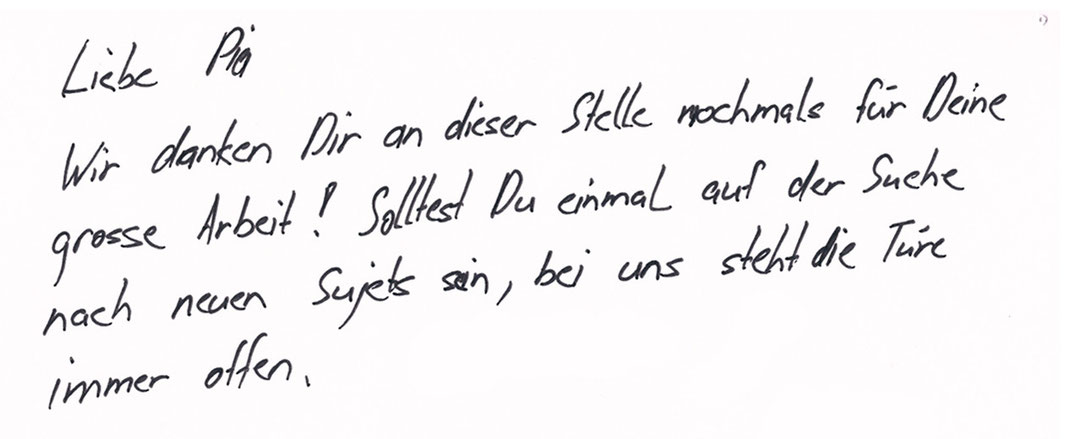 Liebe Pia
Wir danken Dir an dieser Stelle nochmals für Deine
grosse Arbeit! Solltest Du einmal auf der Suche
nach neuen Sujets sein, bei uns steht die Türe
immer offen.